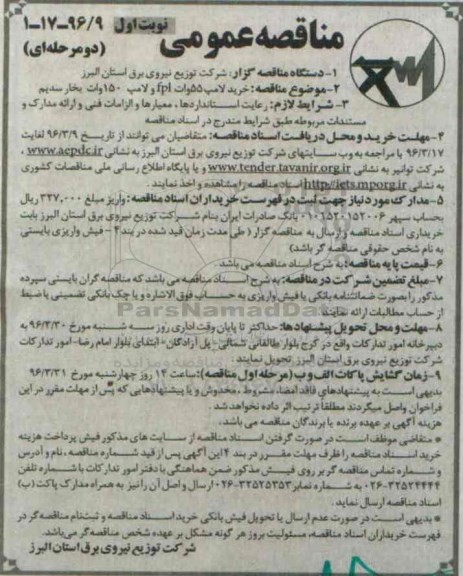 مناقصه عمومی
نوبت اول
۱-۱۷-۹۶/۹
(دو مرحله‌ای)
۱- دستگاه مناقصه گزار: شرکت توزیع نیروی برق استان البرز
۲- موضوع مناقصه: خرید لامپ ۵۵وات fpl و لامپ ۱۵۰وات بخار سدیم
۳- شرایط لازم: رعایت استانداردها، معیارها و الزامات فنی و ارائه مدارک و
مستندات مربوطه طبق شرایط مندرج در اسناد مناقصه
۴- مهلت خرید و محل دریافت اسناد مناقصه: متقاضیان می توانند از تاریخ ۹۶/۳/۹ لغایت
۹۶/۳/۱۷ با مراجعه به وب سایتهای شرکت توزیع نیروی برق استان البرز به نشانی www.aepdc.ir ،
شرکت توانیر به نشانی www.tender.tavanir.org.ir و یا پایگاه اطلاع رسانی ملی مناقصات کشوری
به نشانی http://iets.mporg.ir اسناد مناقصه را مشاهده و اخذ نمایند .
۵- مدارک مورد نیاز جهت ثبت در فهرست خریداران اسناد مناقصه: واریز مبلغ ۳۲۷,۰۰۰ ریال
بحساب سپهر ۰۱۰۱۵۲۰۱۵۲۰۰۶ بانک صادرات ایران بنام شرکت توزیع نیروی برق استان البرز بابت
خریداری اسناد مناقصه و ارسال به مناقصه گزار ( طی مدت زمان قید شده در بند ۴ - فیش واریزی بایستی
به نام شخص حقوقی مناقصه گر باشد)
۶- قیمت پایه مناقصه: به شرح اسناد مناقصه می باشد
۷- مبلغ تضمین شرکت در مناقصه: به شرح اسناد مناقصه می باشد که مناقصه گران بایستی سپرده
مذکور را بصورت ضمانتنامه بانکی یا فیش واریزی به حساب فوق الاشاره و یا چک بانکی تضمینی یا ضبط
از حساب مطالبات ارائه نمایند
۸- مهلت و محل تحویل پیشنهادها: حداکثر تا پایان وقت اداری روز سه شنبه مورخ ۹۶/۳/۳۰ به
دبیرخانه امور تدارکات واقع در کرج بلوار طالقانی شمالی- پل آزادگان- ابتدای بلوار امام رضا- امور تدارکات
شرکت توزیع نیروی برق استان البرز تحویل نمایند .
۹- زمان گشایش پاکات الف و ب (مرحله اول مناقصه): ساعت ۱۴ روز چهارشنبه مورخ ۹۶/۳/۳۱
بدیهی است به پیشنهادهای فاقد امضا، مشروط ، مخدوش و یا پیشنهادهایی که پس از مهلت مقرر در این
فراخوان واصل میگردند مطلقا ترتیب اثر داده نخواهد شد .
هزینه آگهی بر عهده برنده یا برندگان مناقصه می باشد.
* متقاضی موظف است در صورت گرفتن اسناد مناقصه از سایت های مذکور فیش پرداخت هزینه
خرید اسناد مناقصه را ظرف مهلت مقرر در بند ۴ این آگهی پس از قید شماره مناقصه ، نام و آدرس
و شماره تماس مناقصه گر بر روی فیش مذکور ضمن هماهنگی با دفتر امور تدارکات با شماره تلفن
۰۲۶-۳۲۵۲۴۴۴۴ به شماره نمابر ۰۲۶-۳۲۵۲۵۳۵۳ ارسال و اصل آن را نیز به همراه مدارک پاکت (ب)
اسناد مناقصه ارسال نماید .
* بدیهی است در صورت عدم ارسال یا تحویل فیش بانکی خرید اسناد مناقصه و ثبت‌نام مناقصه گر در
فهرست خریداران اسناد مناقصه، مسئولیت بروز هر گونه مشکل بر عهده شخص مناقصه گر می‌باشد.
شرکت توزیع نیروی برق استان البرز